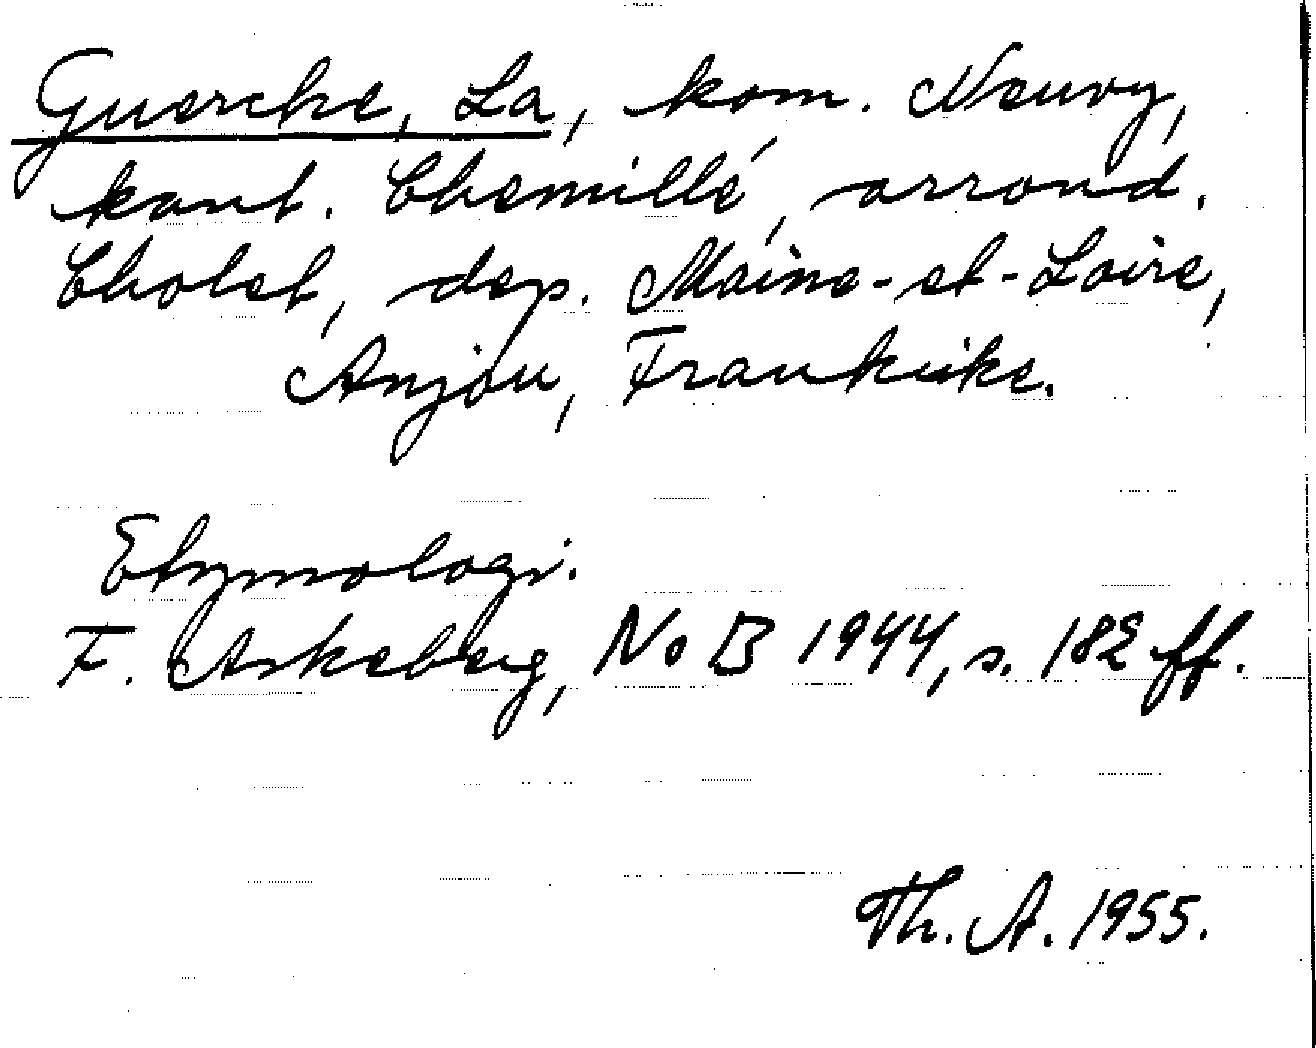 Guerche, La, kom. Neuvy,
kant. Chemillé, arrond.
Cholet, dep. Maine-et-Loire,
Anjou, Frankrike.
Etymologi.
F. Askeberg, NoB 1944, s. 182 ff.
Th. A. 1955.